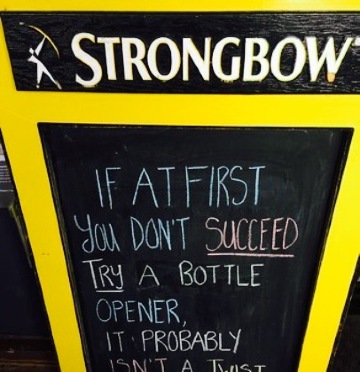 STRONGBOW
IF AT FIRST
YOU DON'T SUCCEED
TRY A BOTTLE
OPENER,
IT PROBABLY
ISN'T A TWIST